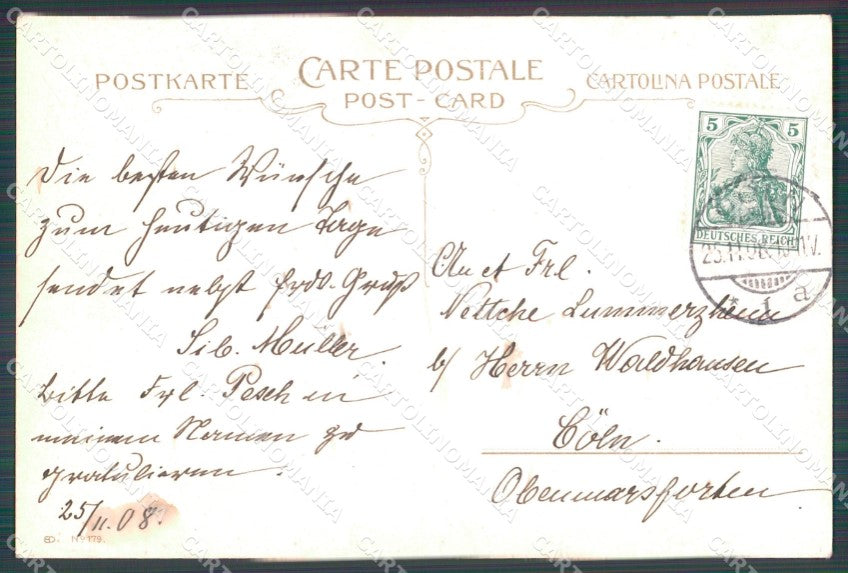 POSTKARTE
CARTE POSTALE
POST-CARD
CARTOLINA POSTALE
5 5
DEUTSCHES REICH
25.11.08
* 1 a
Die besten Wünsche
zum heutigen Tage
sendet nebst frdl. Gruß
Sib. Müller.
Bitte Frl. Pesch in
meinem Namen zu
gratulieren.
25/11.08.
An et Frl.
Nettche Lummerzheim
b/ Herrn Waldhausen
Cöln.
Obenmarspforten
Nº 179.
CARTOLINOMANIA